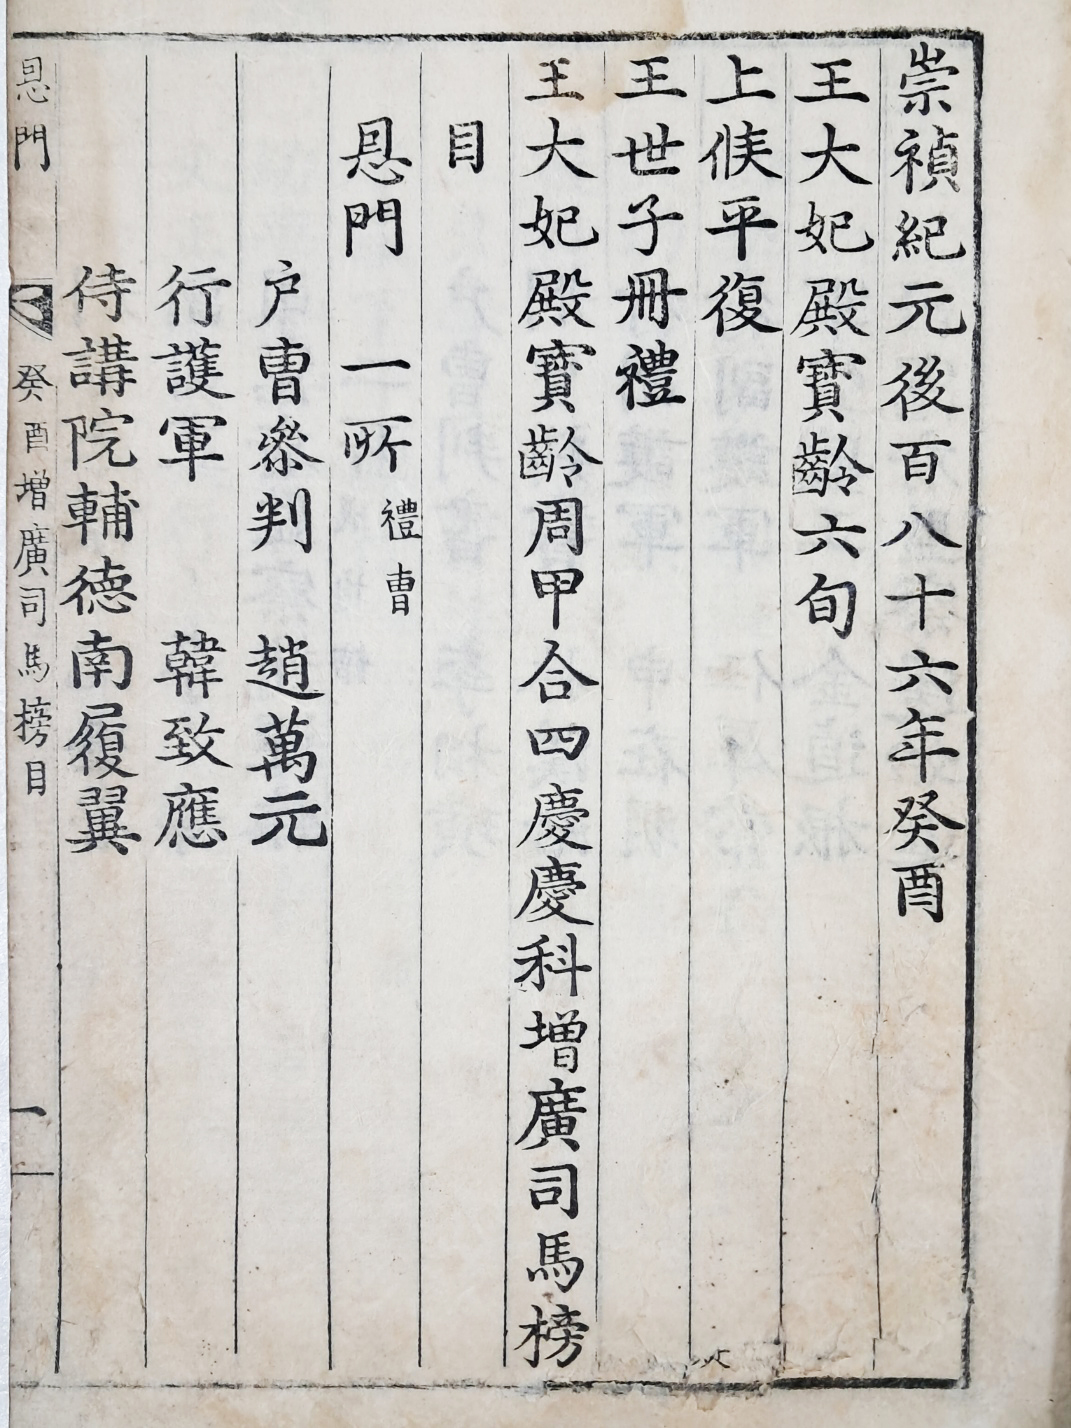 崇禎紀元後百八十六年癸酉
王大妃殿寶齡六旬
上候平復
王世子冊禮
王大妃殿寶齡周甲合四慶慶科增廣司馬榜
目
恩門 一所 禮曺
戶曺叅判 趙萬元
行護軍 韓致應
侍講院輔德南履翼
恩門 癸酉增廣司馬榜目 一